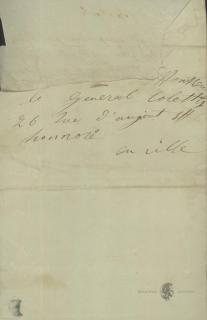 Monsieur
le General Colettis
26 Rue d'anjout St
honnoré
en ville